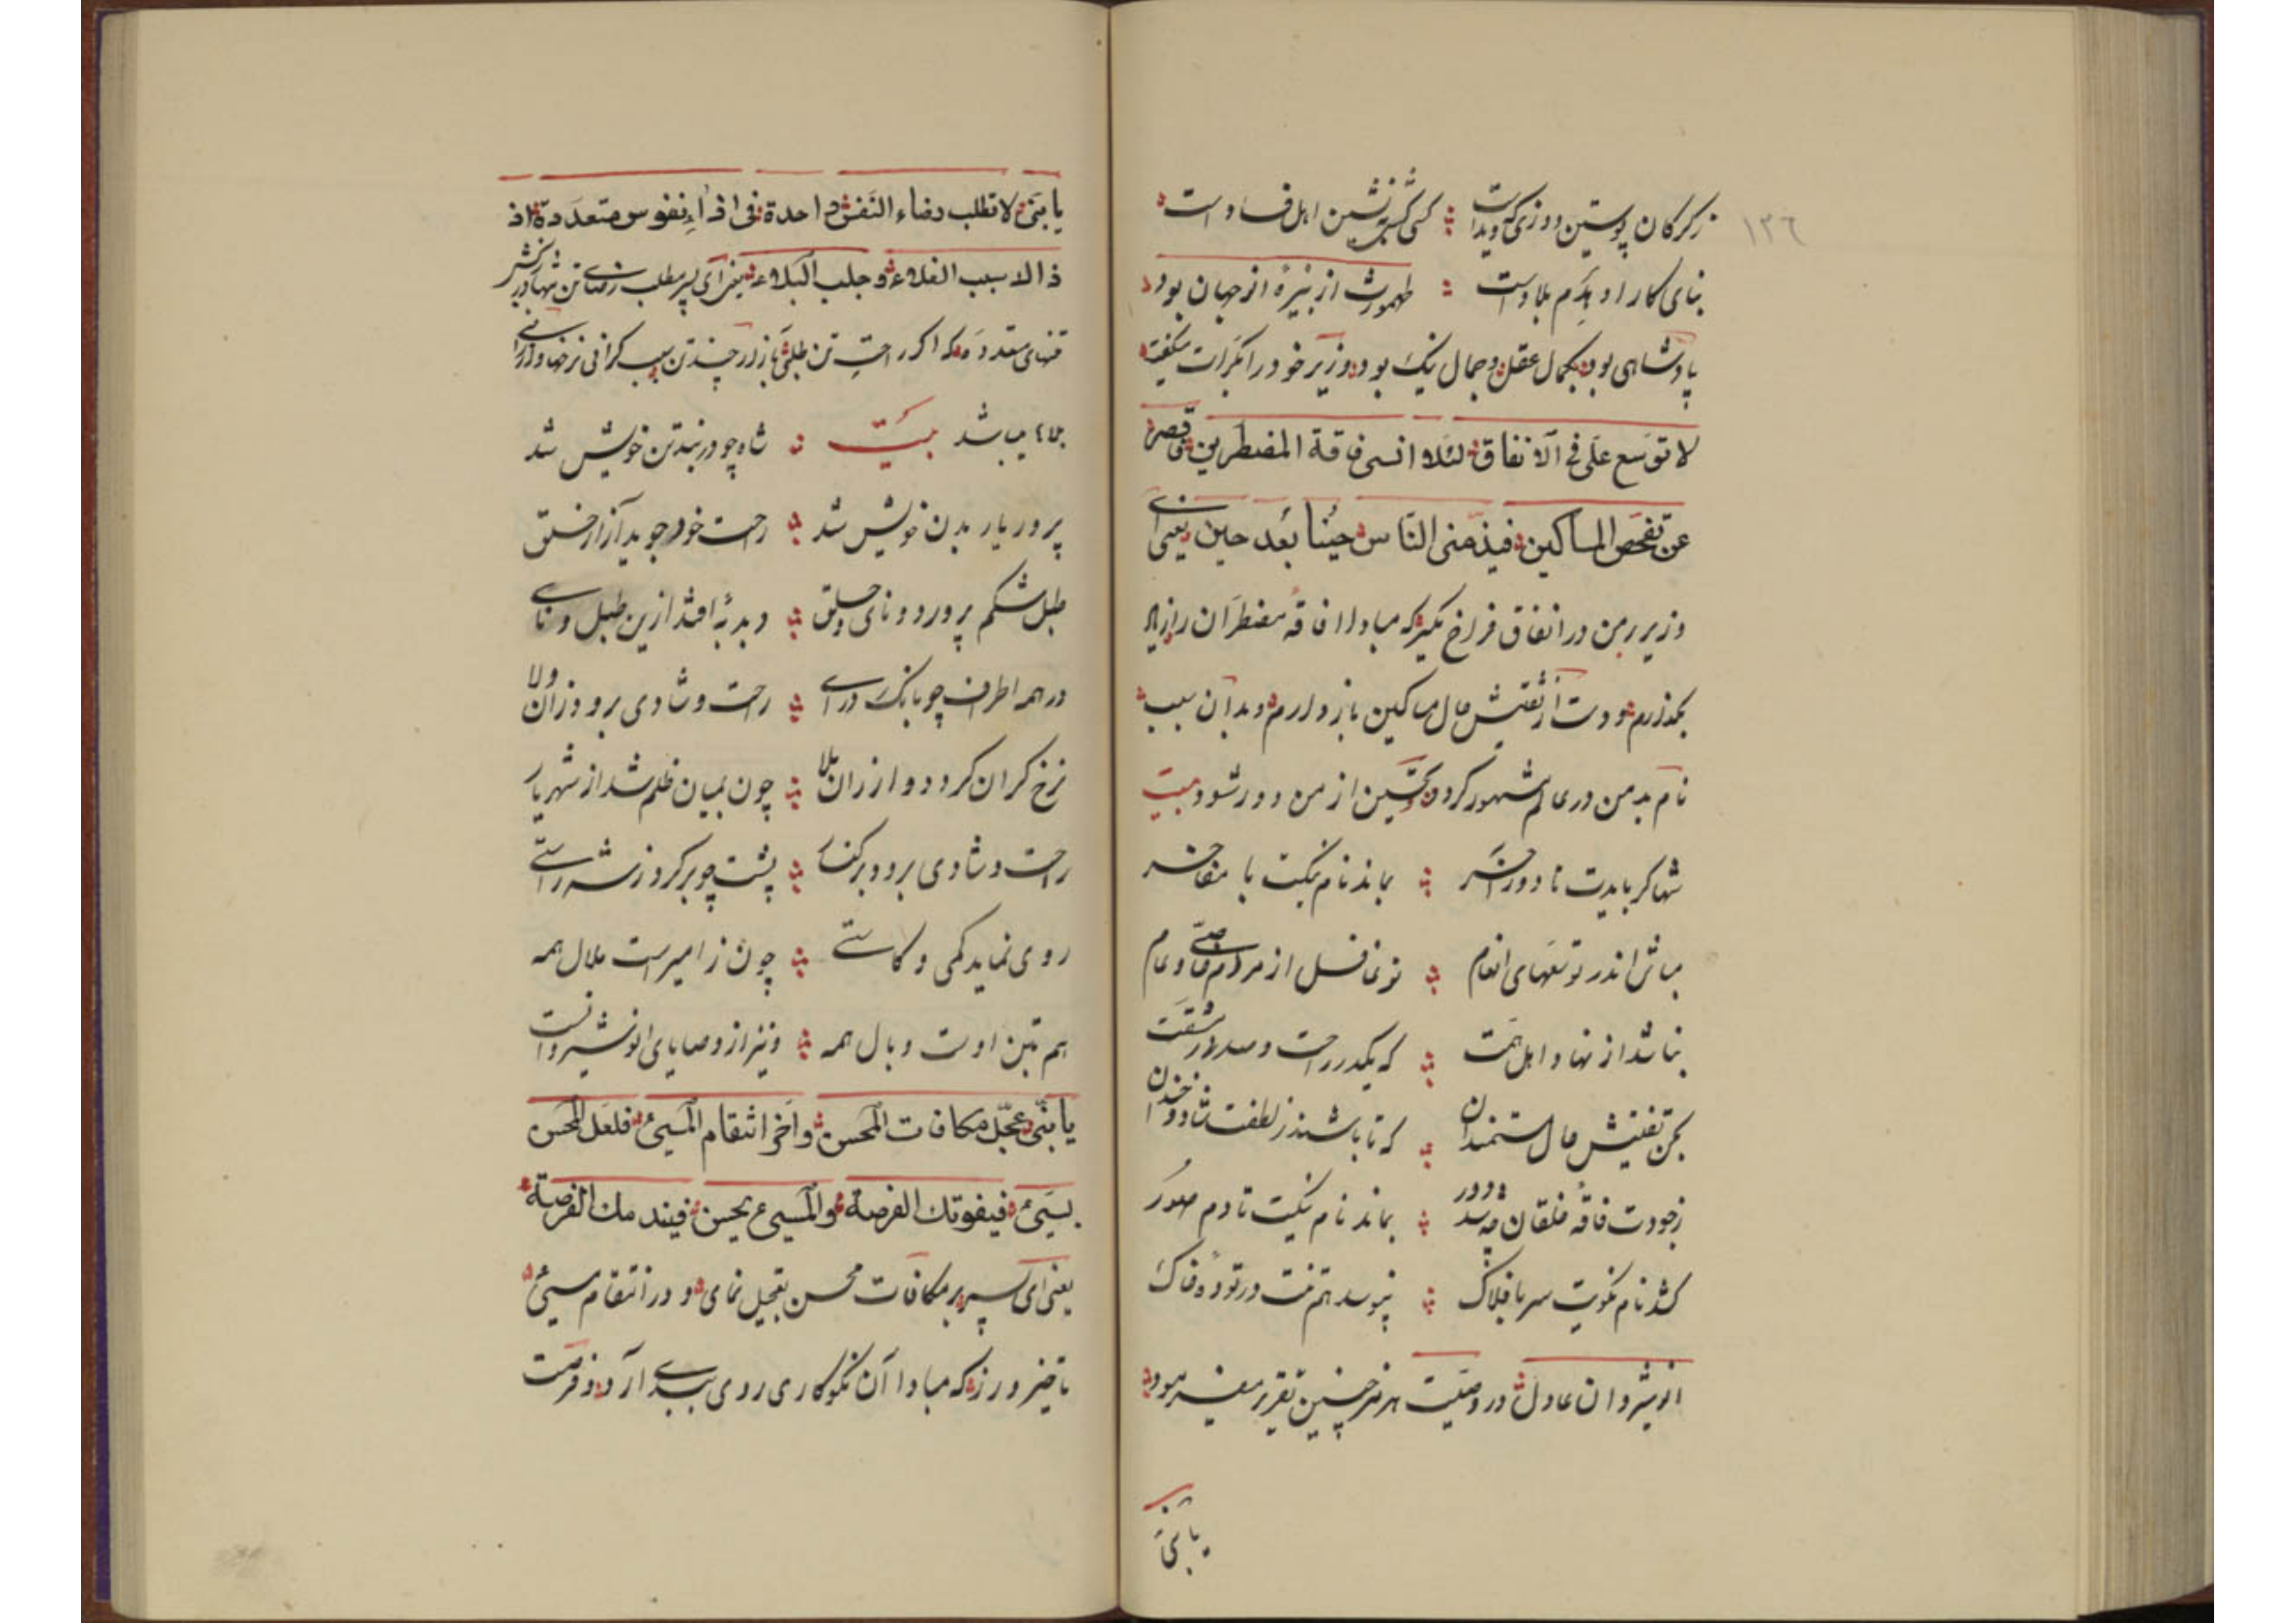 ١٣٦
ز کرکان پوستین دوزی که دیداست ؞ کسی کش همنشین اهل فساد است
بنای کار او بَدَم بلاد است ؞ طهمورث از نبیرهٔ انرجهان بود
پادشاهی بود بکمال عقل و جمال نیک بود وزیر خود را بکرات میکفت
لا توسع علی فی الانفاق لئلا انسی فاقة المضطرین فیقصر
عن تفحص المساکین فیذمنی الناس حینا بعد حین یعنی ای
وزیر بر من در انفاق فراخ مکیر که مبادا فاقهٔ مضطران را از یاد
بکذارم و دست از تفتیش حال مساکین باز دارم و بدان سبب
نام بد من در عالم مشهور کردد و تحسین از من دور شود بیت
شها کر بایدت تا دور آخر ؞ بماند نام نیکت با مفاخر
مباش اندر توسعهای انعام ؞ تو غافل از مردم خاص و عام
نباشد از نهاد اهل همت ؞ که یکدر راحت و صد در مشقت
بکن تفتیش حال مستمندان ؞ که تا باشند ز لطفت شاد و خندان
ز جودت فاقهٔ خلقان چه شد دور ؞ بماند نام نیکت تا دم صور
کشد نام نکویت سر بافلاک ؞ بپوسد هم تنت در تودهٔ خاک
انوشیروان عادل در وصیت هرمز چنین تقریر میفرمود
یا بنی
یا بنی لا تطلب رضاء النفس واحدة فی اذاء نفوس متعددة اذ
ذا لا سبب الغلاء و جلب البلاء یعنی ای پسر مطلب رضای تن تنها در رنجش
تنهای متعدده که اکر راحت تن طلبی بآزار چند تن سبب کرانی نرخها و ارزانی
بلا میباشد بیت ؞ شاه چو در بند تن خویش شد
پرور یار بدن خویش شد ؞ راحت خود جوید آزار خلق
طبل شکم پرورد و نای حلق ؞ دبدبه افتد ازین طبل و نای
در همه اطراف چو بانک درای ؞ راحت و شادی برود زان ولا
نرخ کران کردد و ارزان بلا ؞ چون بمیان ظلم شد از شهریار
راحت و شادی برود بر کنار ؞ پشت چو بر کرد ز شه راستی
روی نماید کمی و کاستی ؞ چون ز امیرست ملال همه
هم بتن اوست وبال همه ؞ و نیز از وصایای انوشیروانست
یا بنی عجّل مکافات المحسن و اخر انتقام المسیئ فلعل المحسن
یسیئ فیفوتك الفرصة و المسیئ یحسن فیندمك الفرصة
یعنی ای پسر بر مکافات محسن تعجیل نمای و در انتقام مسیئ
تاخیر ورز که مبادا آن نکوکاری روی ببدی آرد و فرصت